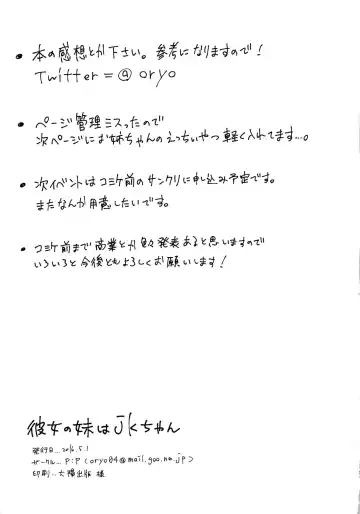 • 本の感想とか下さい。参考になりますので！
Twitter=@oryo
• ページ管理ミスったので
次ページにお姉ちゃんのえっちいやつ軽く入れてます…。
• 次イベントはコミケ前のサンクリに申し込み予定です。
またなんか用意したいです。
• コミケ前まで商業とか色々発表あると思いますので
いろいろと今後ともよろしくお願いします！
彼女の妹はJKちゃん
発行日…2016.5.1
サークル…P:P(oryo04@mail.goo.ne.jp)
印刷…大陽出版 様